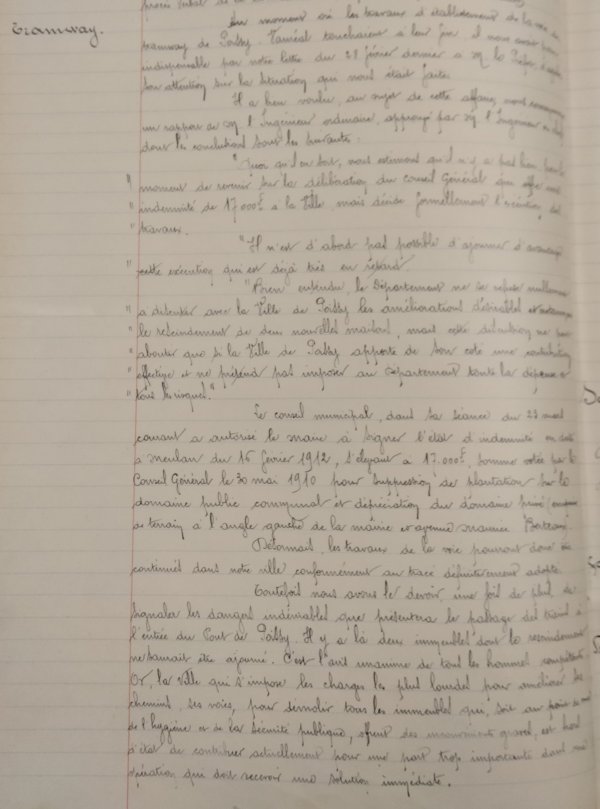 procès verbal de la
Tramway.
Au moment où les travaux d'établissement de la voie du
tramway de Poissy touchaient à leur fin, il nous avait paru
indispensable par notre lettre du 28 février dernier à M. le Préfet, d'appeler
son attention sur la situation qui nous était faite.
Il a bien voulu, au sujet de cette affaire, nous communiquer
un rapport de M. l'Ingénieur ordinaire, approuvé par M. l'Ingénieur en chef
dont les conclusions sont les suivantes.
"Quoi qu'il en soit, nous estimons qu'il n'y a pas lieu, pour le
" moment de revenir sur la délibération du Conseil Général qui offre une
" indemnité de 17.000f à la Ville, mais décide formellement l'exécution des
" travaux.
"Il n'est d'abord pas possible d'ajourner davantage
" cette exécution qui est déjà très en retard.
"Bien entendu, le Département ne se refuse nullement
" à discuter avec la Ville de Poissy les améliorations désirables et
" le rescindement de deux nouvelles maisons, mais cette discussion ne peut
" aboutir que si la Ville de Poissy apporte de son côté une contribution
" effective et ne prétend pas imposer au Département toute la dépense et
" tous les risques."
Le conseil municipal, dans sa séance du 23 mars
courant a autorisé le maire à signer l'état d'indemnité en date
à Meulan du 16 février 1912, s'élevant à 17.000f, somme votée par le
Conseil Général le 30 mai 1910 pour suppression de plantation sur le
domaine public communal et dépréciation du domaine privé
de terrain à l'angle gauche de la mairie et avenue Maurice Berteaux.
Désormais, les travaux de la voie pourront donc être
continués dans notre ville conformément au tracé définitivement adopté.
Toutefois nous avons le devoir, une fois de plus, de
signaler les dangers indéniables que présentera le passage des trains à
l'entrée du Pont de Poissy. Il y a là deux immeubles dont le rescindement
ne saurait être ajourné. C'est l'avis unanime de tous les hommes compétents.
Or, la Ville qui s'impose les charges les plus lourdes pour améliorer ses
chemins, ses voies, pour démolir tous les immeubles qui, soit au point de vue
de l'hygiène et de la sécurité publique, offrent des inconvénients graves, est hors
d'état de contribuer actuellement pour une part trop importante dans une
opération qui doit recevoir une solution immédiate.